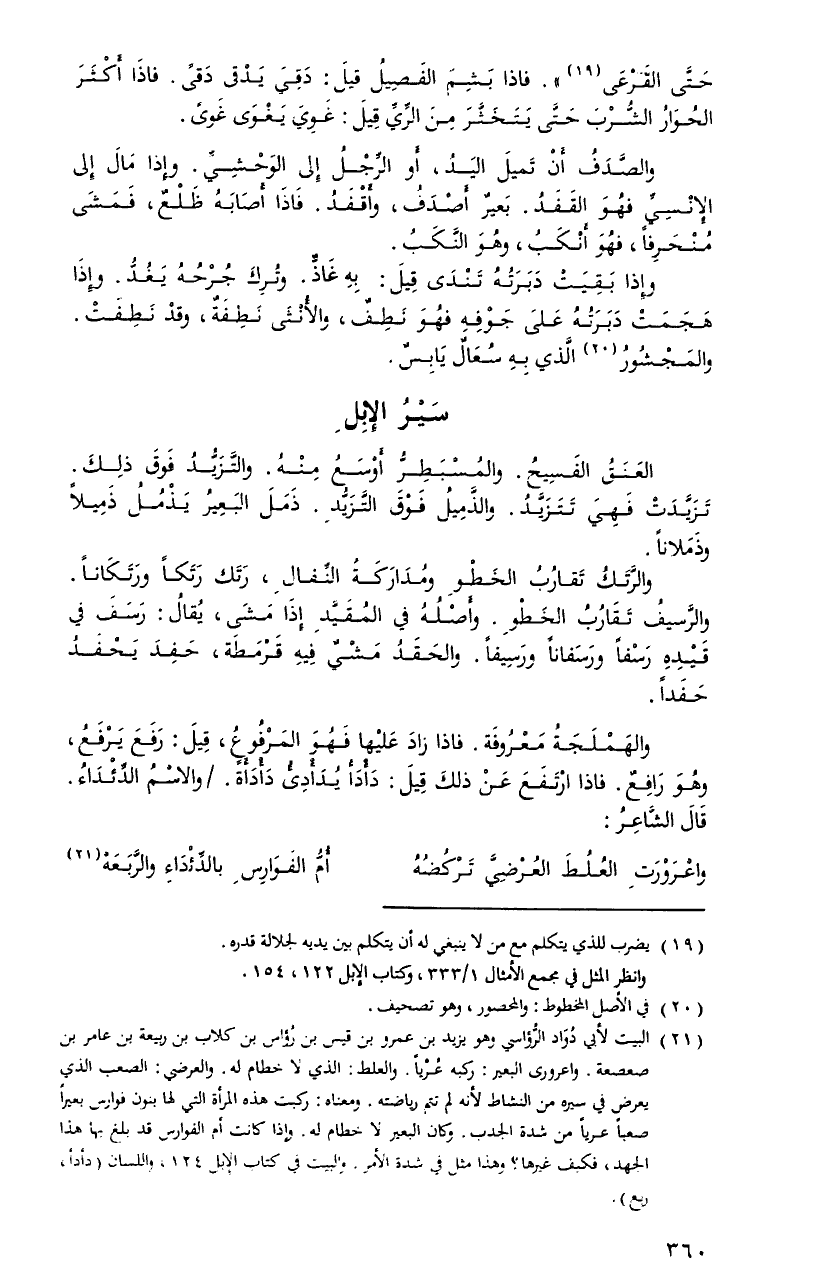 حَتَّى القَرْعَى(١٩)» . فاذا بَشِمَ الفَصِيلُ قيلَ : دَقِيَ يَدْقى دَقىً . فاذَا أَكْثَرَ
الحُوَارُ الشُّرْبَ حَتَّى يَتَخَثَّرَ مِنَ الرِّيِّ قِيلَ : غَوِيَ يَغْوَى غَوىً .
والصَّدَفُ أَنْ تميلَ اليَدُ ، أو الرِّجْلُ إلى الوَحْشيِّ . وإذا مَالَ إلى
الإنْسيِّ فهُوَ القَفَدُ . بَعيرٌ أَصْدَفُ ، وأَقْفَدُ . فَاذَا أَصَابَهُ ظَلْعٌ ، فَمَشَى
مُنْحَرِفاً ، فهُوَ أَنْكَبُ ، وهُوَ النَّكَبُ .
وإذا بَقِيَتْ دَبَرَتُهُ تَنْدَى قِيلَ : بِهِ غَاذٌّ . وتُرِكَ جُرْحُهُ يَغُذُّ . وإذَا
هَجَمَتْ دَبَرَتُهُ عَلىَ جَوْفِهِ فهُوَ نَطِفٌ ، والأُنْثَى نَطِفَةٌ ، وقدْ نَطِفَتْ .
والمَجْشُورُ(٢٠) الَّذي بِهِ سُعَالٌ يَابِسٌ .
سَيْرُ الإبِلِ
العَنَقُ الفَسِيحُ . والمُسْبَطِرُّ أَوْسَعُ مِنْهُ . والتَّزَيُّدُ فَوقَ ذلِكَ .
تَزَيَّدَتْ فَهِيَ تَتَزَيَّدُ . والذَّمِيلُ فَوْقَ التَّزَيُّدِ . ذَمَلَ البَعيرُ يَذْمُلُ ذَمِيلاً
وذَمَلاناً .
والرَّتَكُ تَقارُبُ الخَطْوِ ومُدَارَكَةُ النِّقالِ ، رَتَك رَتَكاً ورَتَكاناً .
والرَّسيفُ تَقَارُبُ الخَطْوِ . وأَصْلُهُ في المُقَيَّدِ إذَا مَشَى ، يُقالُ : رَسَفَ في
قَيْدِهِ رَسْفاً ورَسَفاناً ورَسِيفاً . والحَفَدُ مَشْيٌ فِيهِ قَرْمَطة ، حَفِدَ يَحْفَدُ
حَفَداً .
والهَمْلَجَةُ مَعْرُوفَة . فاذا زادَ عَليْها فَهُوَ المَرْفُوعُ ، قِيلَ : رَفَعَ يَرْفَعُ ،
وهُوَ رَافِعٌ . فاذا ارْتَفَعَ عَنْ ذلكَ قِيلَ : دَأْدَأَ يُدَأْدِىءُ دَأْدَأَةً . /والاسْمُ الدِّئْدَاءُ .
قَالَ الشَّاعِرُ :
واعْرَوْرَتِ العُلُطَ العُرْضِيَّ تَرْكُضُهُ أُمُّ الفَوَارِسِ بالدِّئْدَاءِ والرَّبَعَهْ(٢١)
(١٩) يضرب للذي يتكلم مع من لا ينبغي له أن يتكلم بين يديه لجلالة قدره .
وانظر المثل في مجمع الأمثال ٣٣٣/١ ، وكتاب الإبل ١٢٢ ، ١٥٤ .
(٢٠) في الأصل المخطوط : والمحصور ، وهو تصحيف .
(٢١) البيت لأبي دُوَاد الرُّؤاسي وهو يزيد بن عمرو بن قيس بن رُؤاس بن كلاب بن ربيعة بن عامر بن
صعصعة . واعرورى البعير : ركبه عُرْياً . والعلط : الذي لا خطام له . والعرضي : الصعب الذي
يعرض في سيره من النشاط لأنه لم تتم رياضته . ومعناه : ركبت هذه المرأة التي لها بنون فوارس بعيراً
صعباً عرياً من شدة الجدب . وكان البعير لا خطام له . وإذا كانت أم الفوارس قد بلغ بها هذا
الجهد ، فكيف غيرها؟ وهذا مثل في شدة الأمر . والبيت في كتاب الإبل ١٢٤ ، واللسان (دأدأ ،
ربع) .
٣٦٠